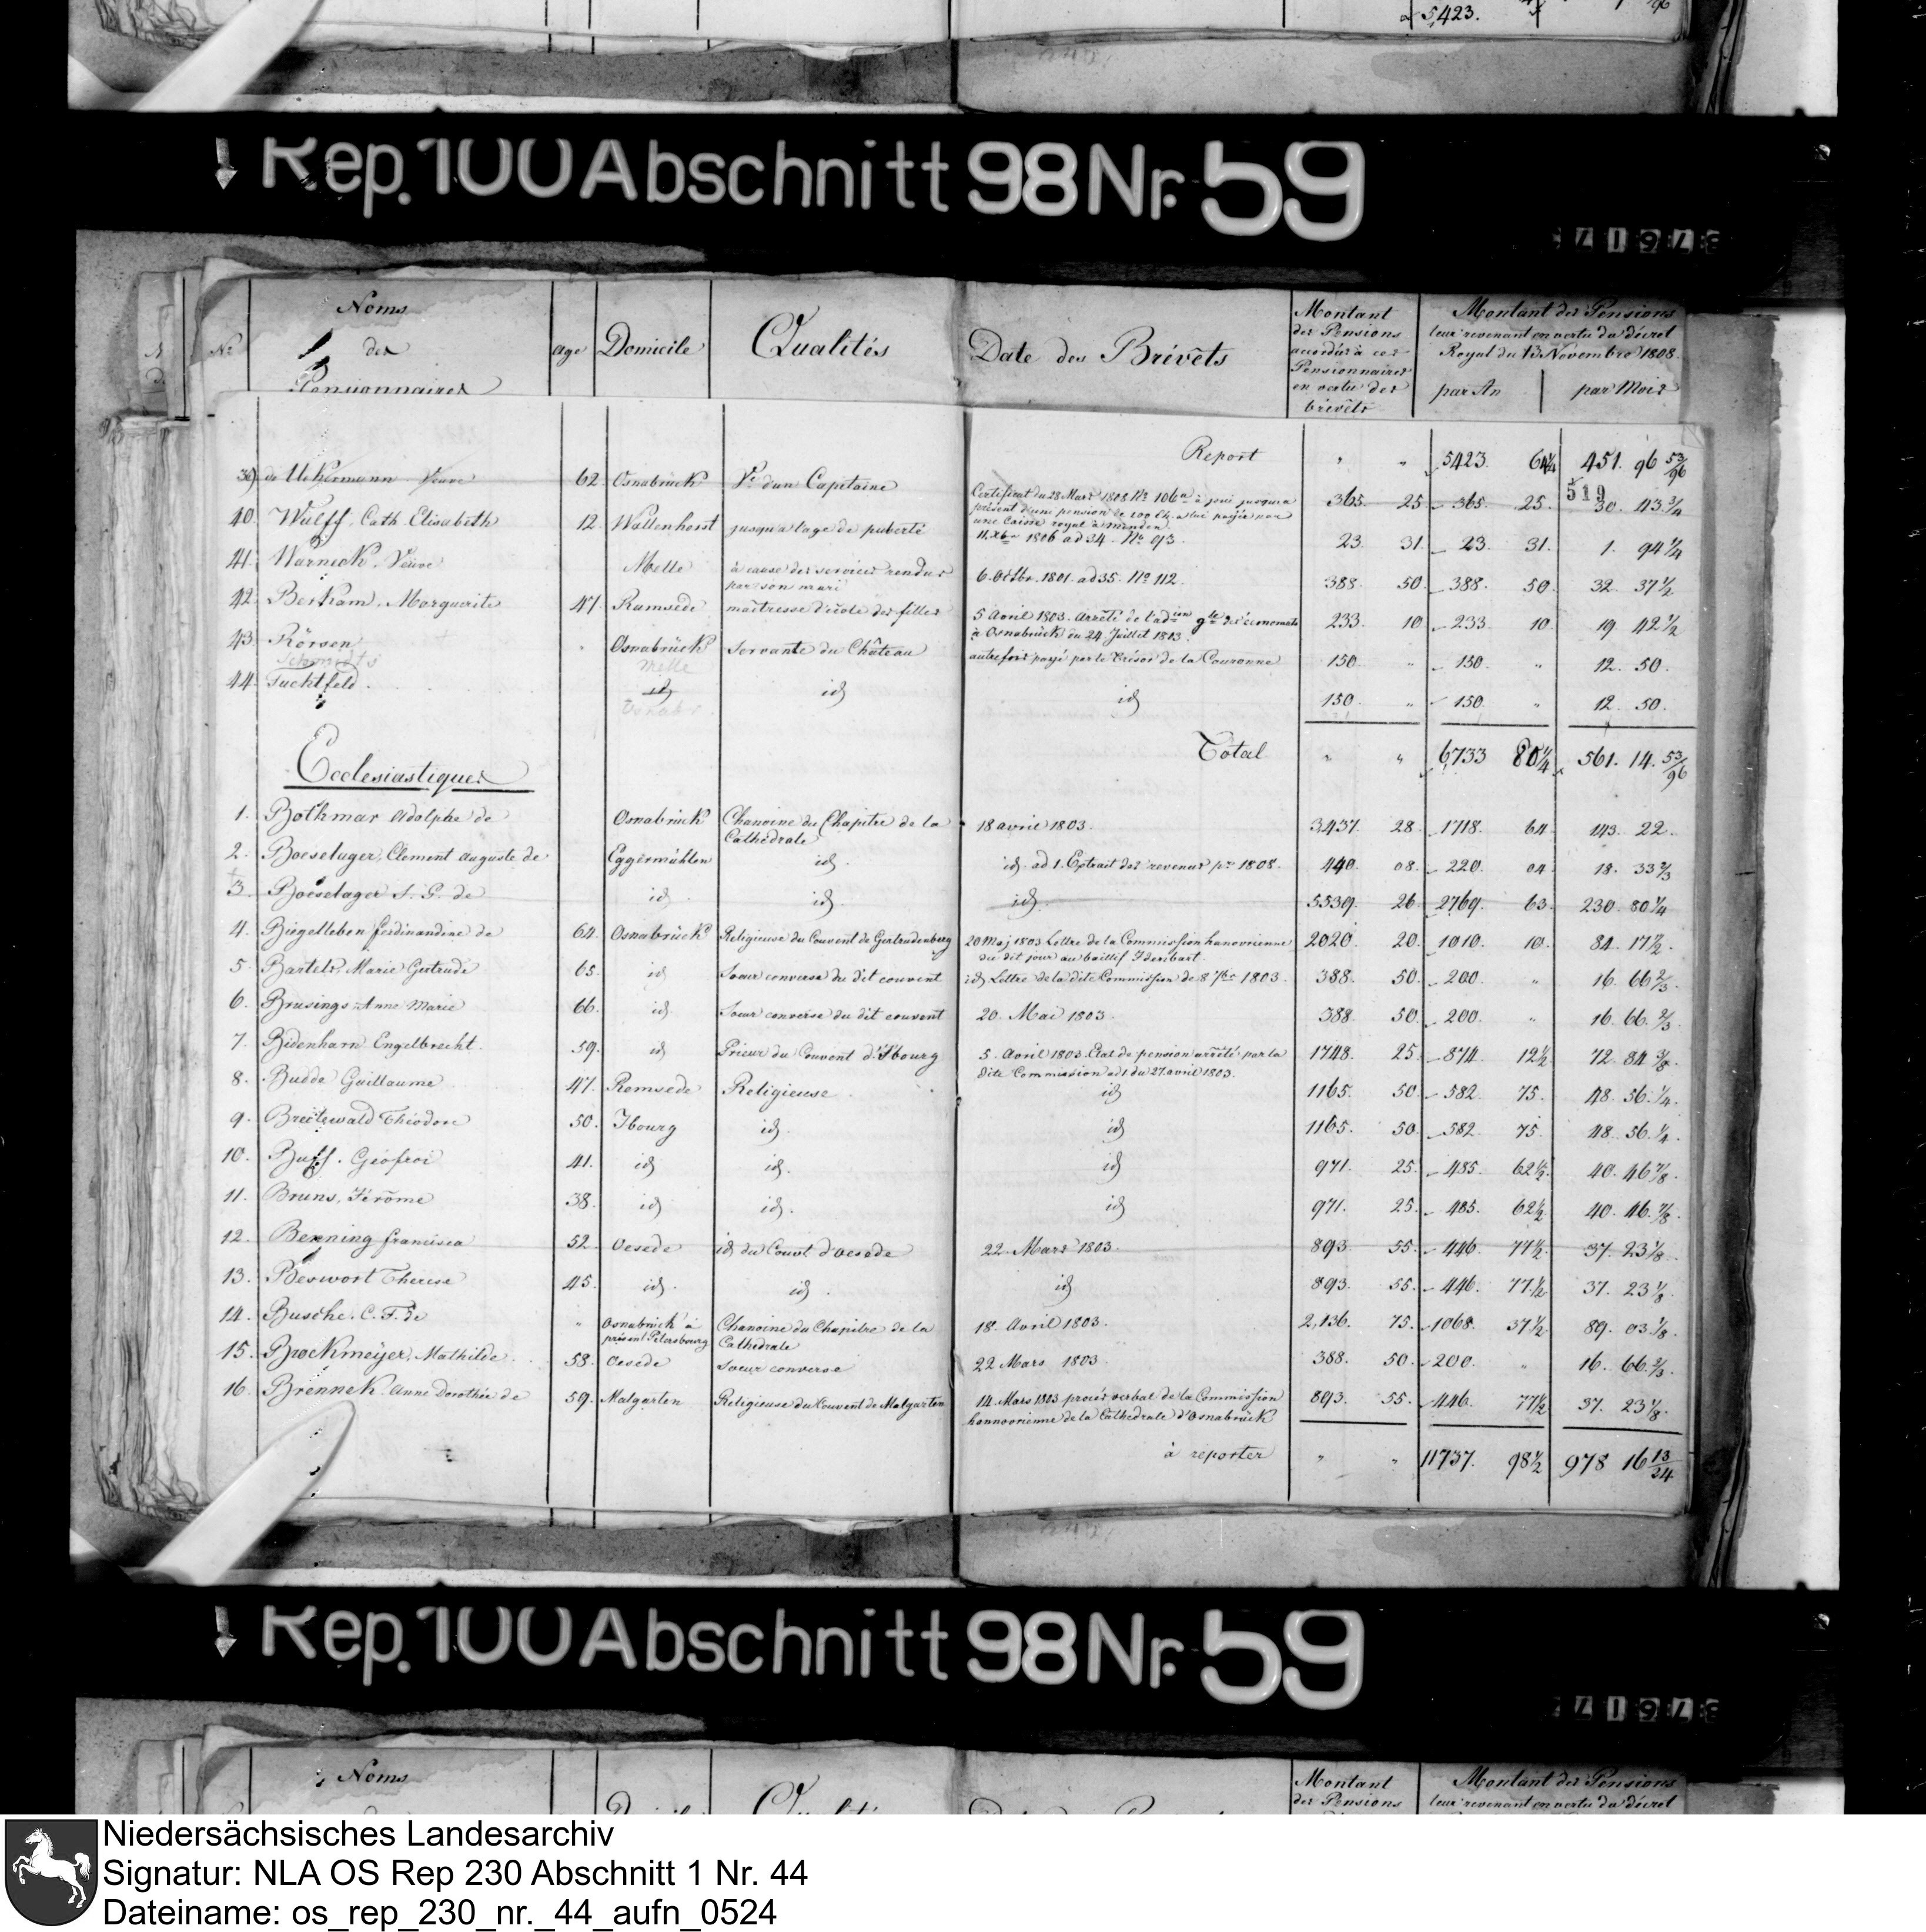 5423.
Rep. 100 Abschnitt 98 Nr. 59
Nº
Noms
des
Pensionnaires
age
Domicile
Qualités
Date des Brévêts
Montant
des Pensions
accordés à ces
Pensionnaires
en vertu des
brévêts
Montant des Pensions
leur revenant en vertu du décret
Royal du 13 Novembre 1808.
par An
par Mois
Report " " 5423. 64¼ 451. 96 53/96
519
39) de Utkermann Veuve 62 Osnabrück Ve d'un Capitaine Certificat du 28 Mars 1808 No 106a à joui jusqu'a 365 25 365 25. 30. 43.¾
présent d'une pension de 100 à lui payée par
une Caisse royal à Minden.
40. Wulff, Cath. Elisabeth 12. Wallenhorst jusqu'a l'age de puberté 11. Xbr 1806 ad 34. No. 93. 23. 31 23. 31. 1. 94¼
41. Warneck. Veuve Melle à cause des services rendus 6. Octbr. 1801. ad 35. No 112. 388. 50. 388. 50. 32. 37½
par son mari
42. Berkam, Marguerite 47. Ramsede maitresse d'école des filles 5 Avril 1803. Arrêté de l'adion gle des économats 233. 10 233. 10. 19 42½
à Osnabrück du 24 Juillet 1813.
43. Rörsen Osnabrück Servante du Château autrefois payé par le Trésor de la Couronne 150. " 150. " 12. 50.
Schmidts Melle
44. Tuchtfeld. id id id 150. " 150. " 12. 50.
Osnabr.
Total " " 6733 80¼ 561. 14. 53/96
Ecclesiastiques
1. Bothmar Adolphe de Osnabrück Chanoine du Chapitre de la 18 avril 1803. 3437. 28. 1718. 64 143. 22.
Cathédrale
2. Boeselager, Clement Auguste de Eggermühlen id. id. ad 1. Extrait des revenus pr 1808. 440. 08. 220. 04 18. 33⅔
3. Boeselager S. G. de id. id. id. 5539. 26 2769. 63. 230. 80¼
4. Biegelleben Ferdinandine de 64. Osnabrück Religieuse du Couvent de Gertrudenberg 20 Maj 1803 Lettre de la Commission hanovrienne 2020. 20. 1010. 10. 84. 17½
du dit jour au baillif
5. Bartels, Marie Gertrude 65. id Soeur converse du dit couvent id. Lettre de la dite Commission de 8 7br 1803. 388. 50. 200. " 16. 66⅔
6. Brusings Anne Marie 66. id Soeur converse du dit couvent 20. Mai 1803. 388. 50. 200. " 16. 66.⅔
7. Bidenharn Engelbrecht. 59. id Prieur du Couvent d'Ibourg 5. Avril 1803. Etat de pension arrêté par la 1748. 25. 874. 12½ 72. 84⅜
dite Commission ad 1 du 27. avril 1803.
8. Budde Guillaume 47. Remsede Religieuse. id 1165. 50. 582. 75. 48. 56.¼
9. Breitswald Théodore 50. Ibourg id. id 1165. 50. 582. 75. 48. 56.¼
10. Buff. Géofroi 41. id id. id 971. 25. 485. 62½. 40. 46⅞
11. Bruns, Jérôme 38. id id. id 971. 25. 485. 62½ 40. 46.⅞
12. Benning Francisca 52. Oesede id du Couvt d'Oesede 22. Mars 1803. 893. 55. 446. 77½. 37. 23⅛
13. Beswort Therese 45. id. id. id 893. 55. 446. 77.½ 37. 23⅛
14. Busche. C. F. de " Osnabrück à Chanoine du Chapitre de la 18. Avril 1803. 2,136. 75. 1068. 37½ 89. 03⅛.
présent Petersbourg Cathédrale
15. Brockmeÿer, Mathilde. 58. Oesede Soeur converse 22 Mars 1803. 388. 50. 200. " 16. 66.⅔.
16. Brennek. Anne Dorothée de 59. Malgarten Religieuse du Couvent de Malgarten 14. Mars 1803 procès verbal de la Commission 893. 55. 446. 77½ 37. 23⅛.
hannovrienne de la Cathédrale d'Osnabrück
à reporter " " 11737. 98½ 978 16 13/24
Rep. 100 Abschnitt 98 Nr. 59
Noms
Montant
des Pensions
Montant des Pensions
leur revenant en vertu du décret
Niedersächsisches Landesarchiv
Signatur: NLA OS Rep 230 Abschnitt 1 Nr. 44
Dateiname: os_rep_230_nr._44_aufn_0524